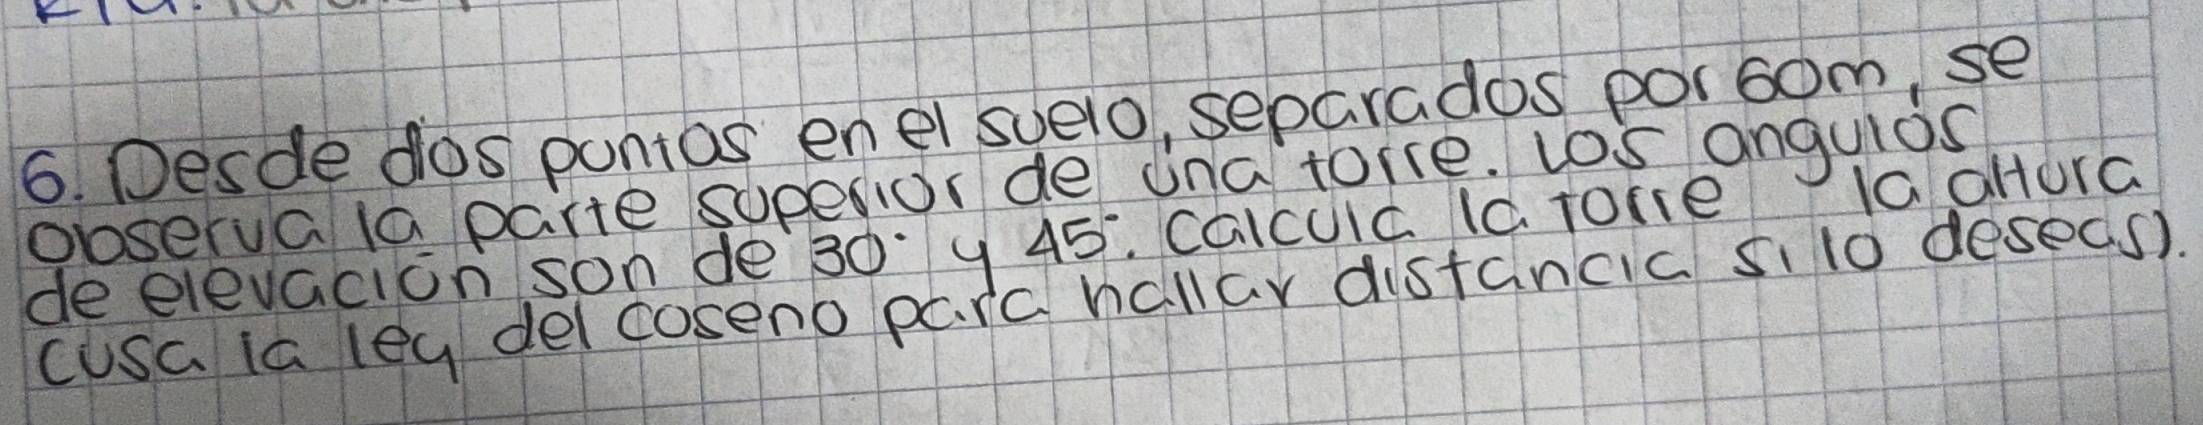 6. Desde dos puntos en el suelo, separados por 60m, se
observa la parte superior de una torre. Los angulos
de elevación son de 30° y 45°. Calcula la torre la altura
(usa la ley del coseno para hallar distancia si lo deseas).